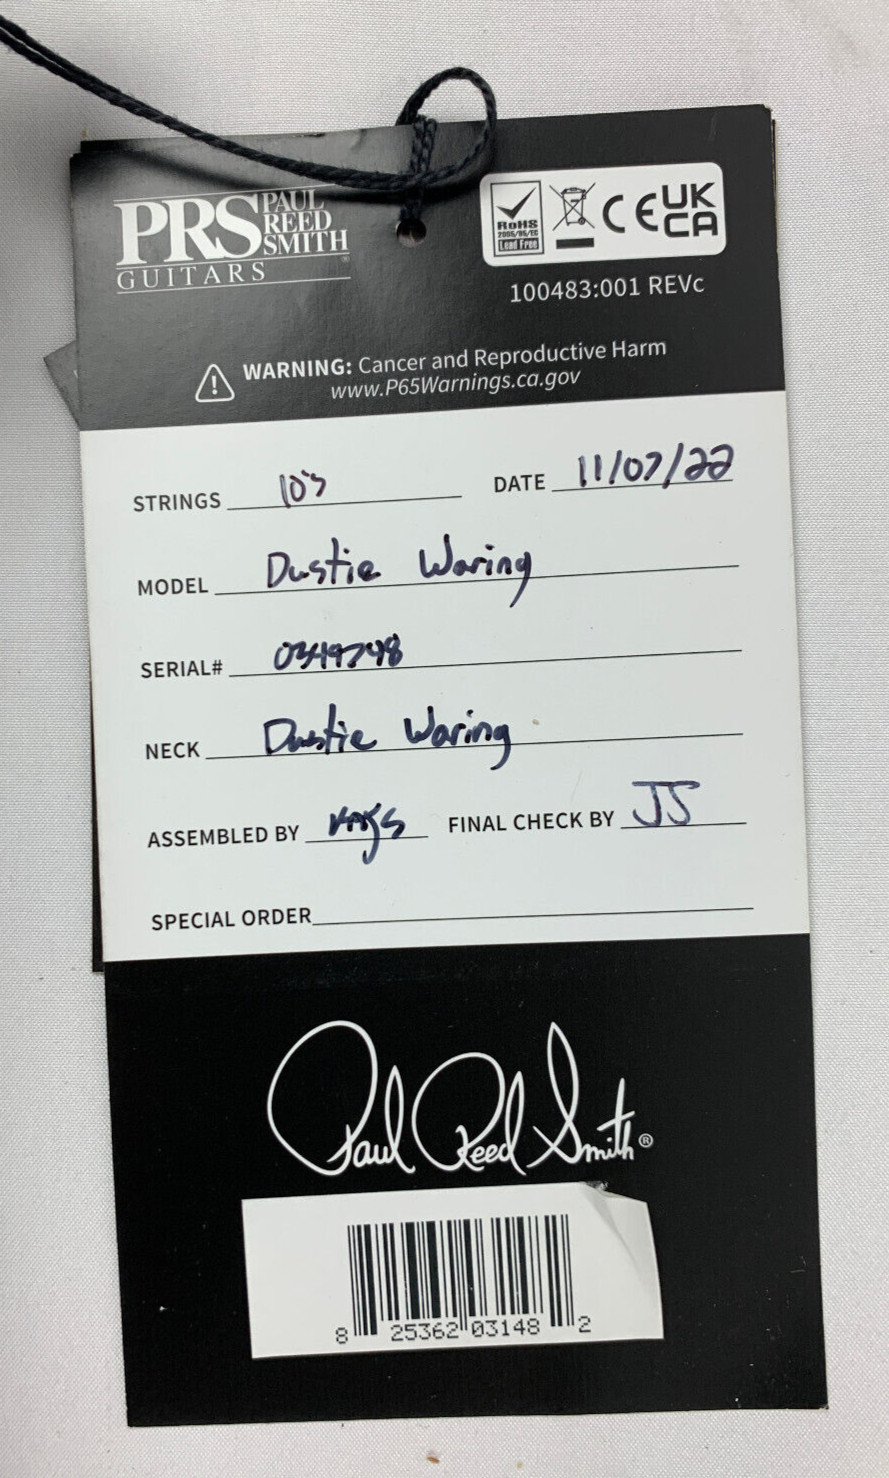 PRS PAUL REED SMITH
GUITARS
RoHS
2005/95/EC
Lead Free
CE UK CA
100483:001 REVc
WARNING: Cancer and Reproductive Harm
www.P65Warnings.ca.gov
STRINGS 10's DATE 11/07/22
MODEL Dustie Waring
SERIAL# 0349748
NECK Dustie Waring
ASSEMBLED BY FINAL CHECK BY JS
SPECIAL ORDER
Paul Reed Smith®
8 25362 03148 2